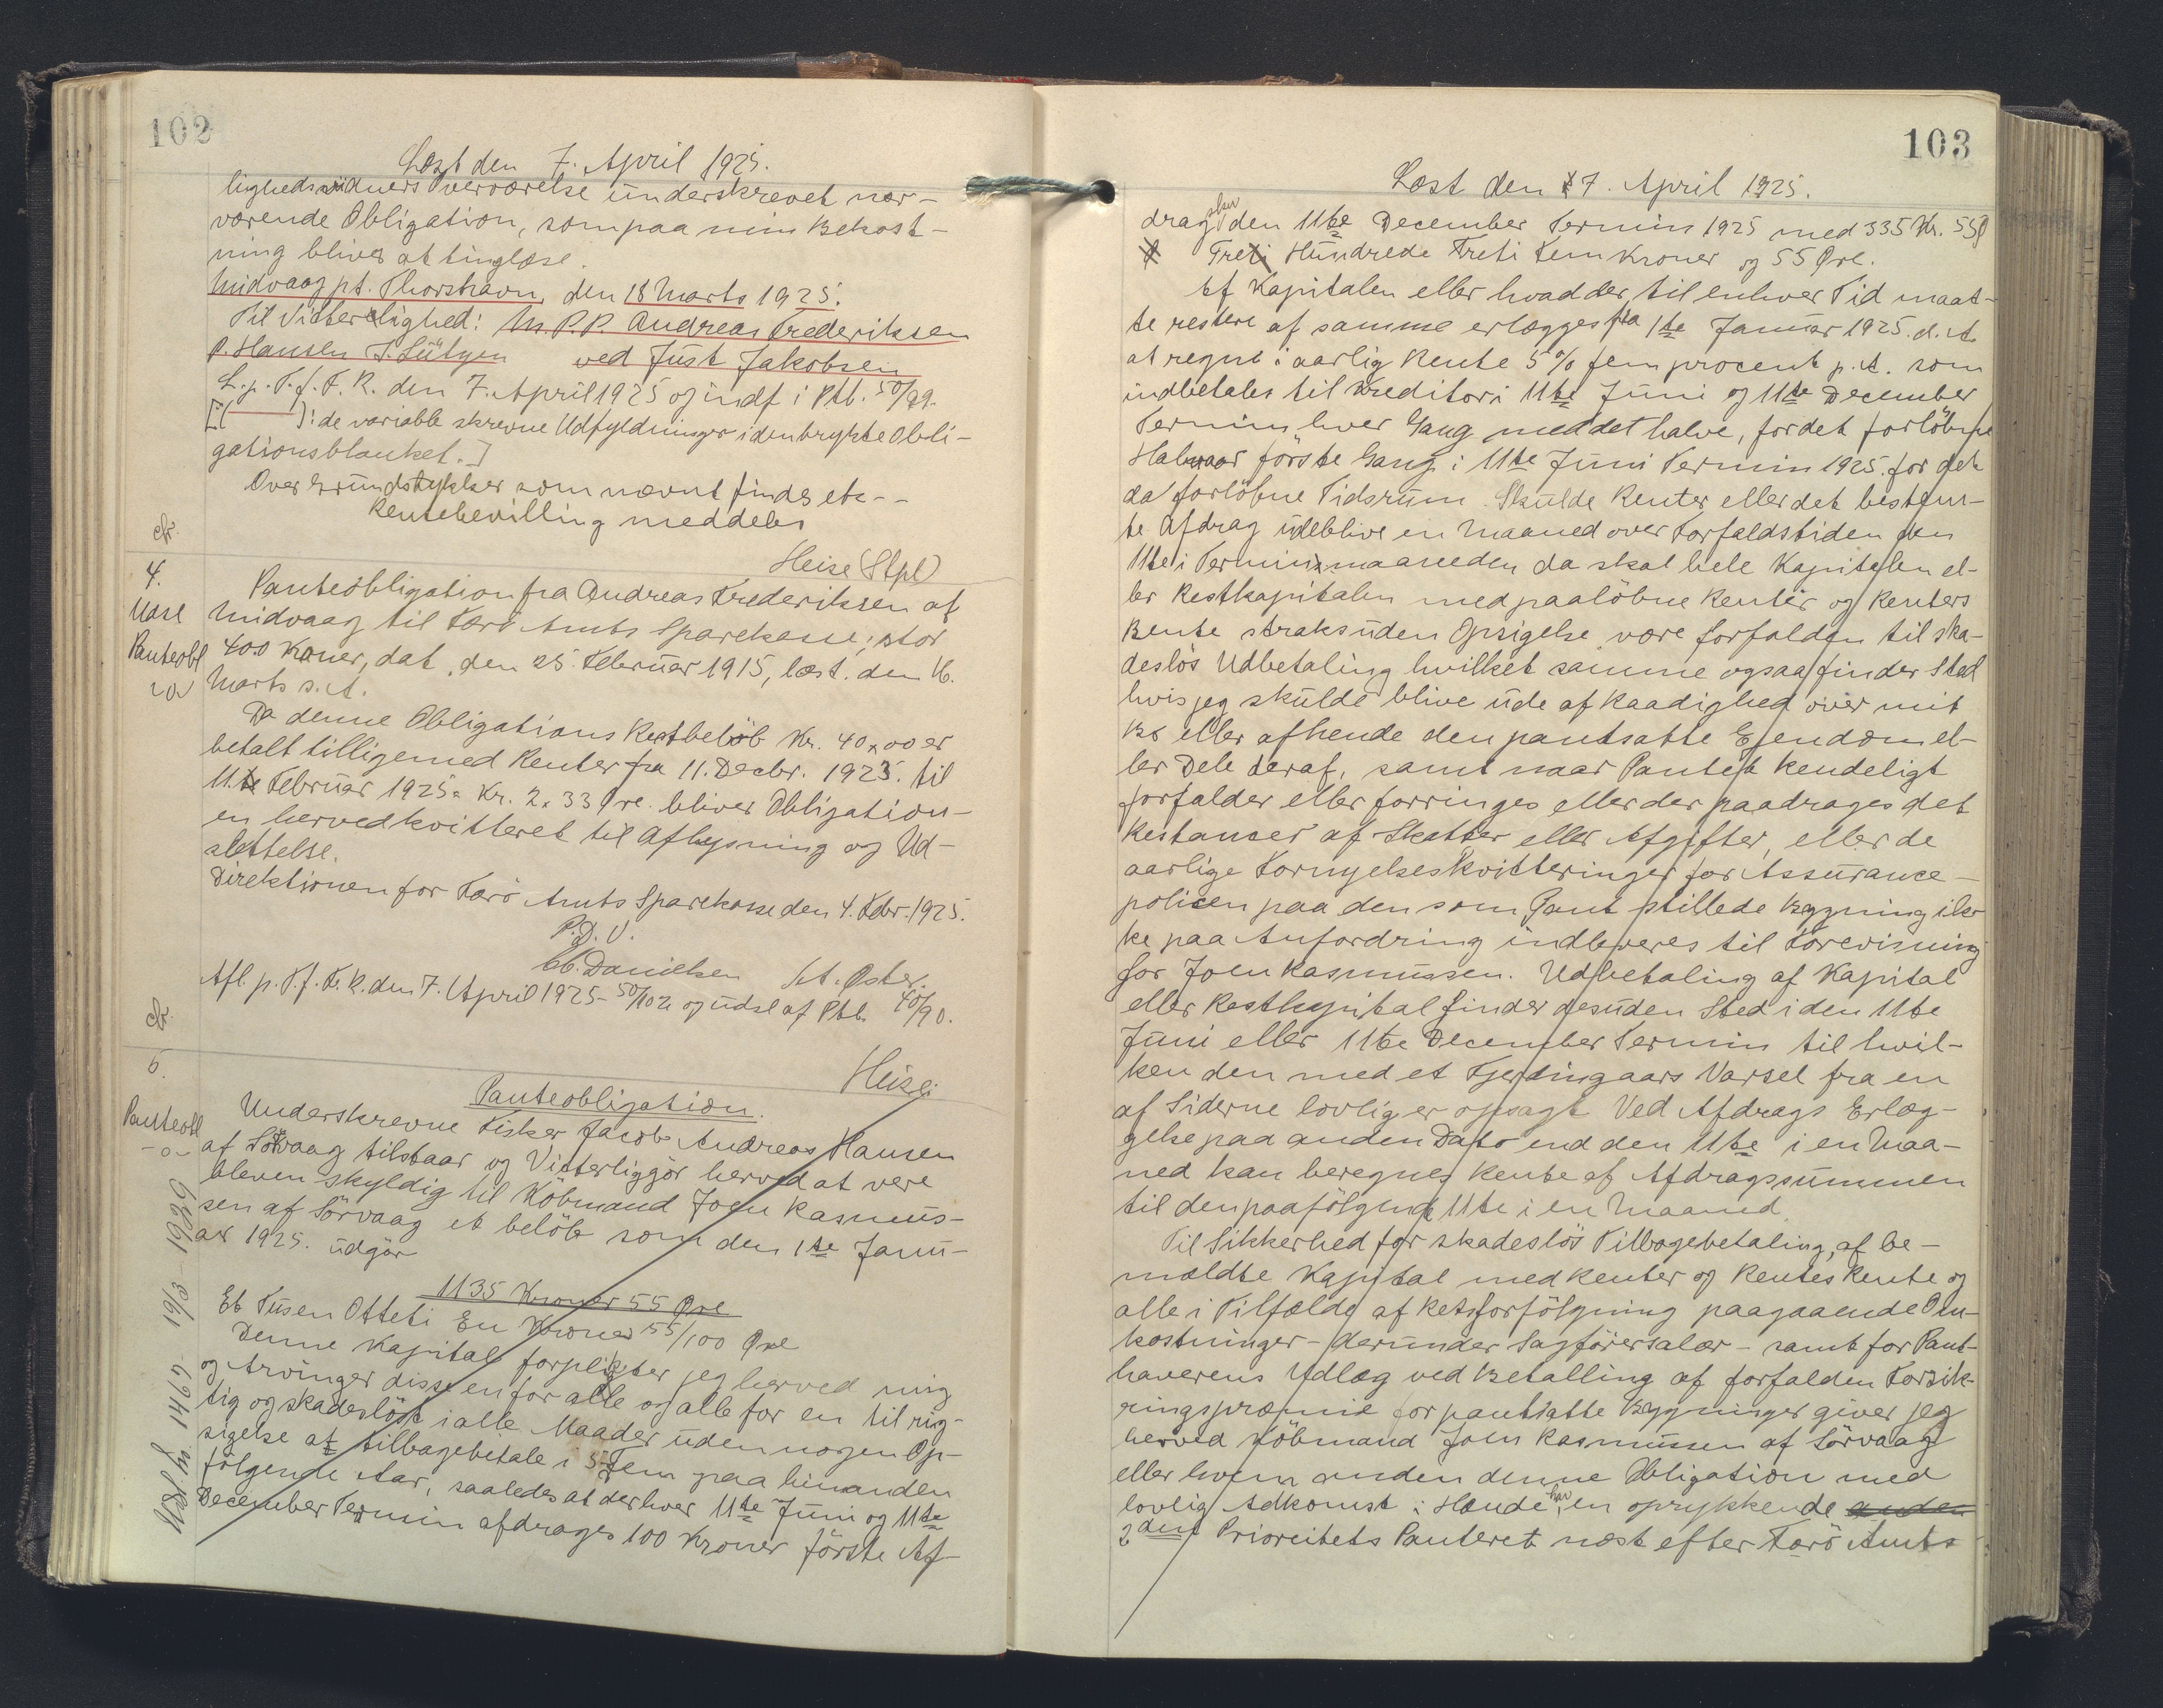 102
Læst den 7. April 1925.
lighedsvidners Overværelse underskrevet nær-
værende Obligation, som paa min Bekost-
ning bliver at tinglæse.
Midvaag pt. Thorshavn, den 18 Marts 1925.
Til Vitterlighed: M.P.P. Andreas Frederiksen
P. Hansen J. Lützen ved Just Jakobsen
L. p. T. f. F. R. den 7. April 1925 og indf i Ptb. 50/99.
[:( ): de variable skrevne Udfyldninger i den trykte Obli-
gationsblanket.]
Over Grundstykker som nævnt findes etc--
Rentebevilling meddeles
Heise (Stpl)
cfr.
4.
Udsl
Panteobl
Panteobligation fra Andreas Frederiksen af
Midvaag til Færø Amts Sparekasse, stor
400 Kroner, dat. den 25. Februar 1915, læst. den 16.
Marts s.A.
Da denne Obligations Restbeløb Kr. 40,00 er
betalt tilligemed Renter fra 11. Decbr. 1923. til
11. Februar 1925 = Kr. 2,33 Øre. bliver Obligation-
en herved kvitteret til Aflysning og Ud-
slettelse.
Direktionen for Færö Amts Sparekasse den 4. Febr. 1925.
P.D.V.
Chr. Danielsen M. Öster.
Afl. p. T. f. F. R. den 7. April 1925 - 50/102 og udsl af Ptb. 40/90.
cfr.
Heise
5.
Panteobl
-o-
Panteobligation.
Underskrevne Fisker Jacob Andreas Hansen
af Sörvaag tilstaar og Vitterliggjör herved at være
bleven skyldig til Köbmand Joen Rasmus-
sen af Sörvaag et belöb som den 1te Janu-
ar 1925. udgör
1135 Kroner 55 Øre
Et Tusen Otteti En Kroner 55/100 Øre
Denne Kapital forpligter jeg herved mig
og Arvinger disse en for alle og alle for en til rig-
tig og skadeslöst i alle Maader uden nogen Op-
sigelse at tilbagebetale i 5 Fem paa hinanden
følgende Aar, saaledes at der hver 11te Juni og 11te
December Termin afdrages 100 Kroner förste Af-
Udsl. Nr. 1467 - 16/3 - 1929
103
Læst den 7. April 1925.
drag sker den 11te December Termin 1925 med 335 Kr. 55 Ø
Tre Hundrede Treti Fem Kroner og 55 Øre.
Af Kapitalen eller hvad der til enhver Tid maat-
te restere af samme erlægges fra 1te Januar 1925. d. A.
at regne i aarlig Rente 5 % fem procent p. A. som
indbetales til Kreditor i 11te Juni og 11te December
Termin hver Gang med det halve, for det forlöbne
Halvaar förste Gang i 11te Juni Termin 1925. for det
da forlöbne Tidsrum. Skulde Renter eller det bestem-
te Afdrag udeblive en Maaned over Forfaldstiden den
11te i Terminmaaneden da skal hele Kapitalen el-
ler Restkapitalen med paalöbne Renter og Renters
Rente straks uden Opsigelse være forfalden til ska-
deslös Udbetaling hvilket samme ogsaa finder Sted
hvis jeg skulde blive ude af Raadighed over mit
Bo eller afhende den pantsatte Ejendom el-
ler Dele deraf, samt naar Pantet kendeligt
forfalder eller forringes eller der paadrages det
Restancer af Skatter eller Afgifter, eller de
aarlige Fornyelseskvitteringer for Assurance-
policen paa den som Pant stillede Bygning ik-
ke paa Anfordring indleveres til Forevisning
for Joen Rasmussen. Udbetaling af Kapital
eller Restkapital finder desuden Sted i den 11te
Juni eller 11te December Termin til hvil-
ken den med et Fjerdingaars Varsel fra en
af Siderne lovlig er opsagt. Ved Afdrags Erlæg-
gelse paa anden Dato end den 11te i en Maa-
ned kan beregnes Rente af Afdragssummen
til den paafölgende 11te i en Maaned.
Til Sikkerhed for skadeslös Tilbagebetaling, af be-
mældte Kapital med Renter og Rentes Rente og
alle i Tilfælde af Retsforfölgning paagaaende Om-
kostninger - derunder Sagförersalær - samt for Pant-
haverens Udlæg ved Betalling af forfalden Forsik-
ringspræmie for pantsatte Bygninger giver jeg
herved Köbmand Joen Rasmussen af Sörvaag
eller hvem anden denne Obligation med
lovlig Adkomst i Hænde har, en oprykkende anden
2den Prioreitets Panteret næst efter Færö Amts